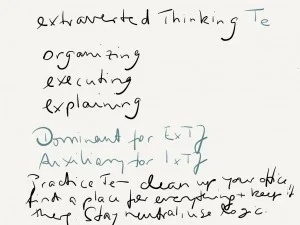 extraverted Thinking Te
organizing
executing
explaining
Dominant for ExTJ
Auxiliary for IxTJ
Practice Te - clean up your office
find a place for everything + keep it
there Stay neutral, use logic.